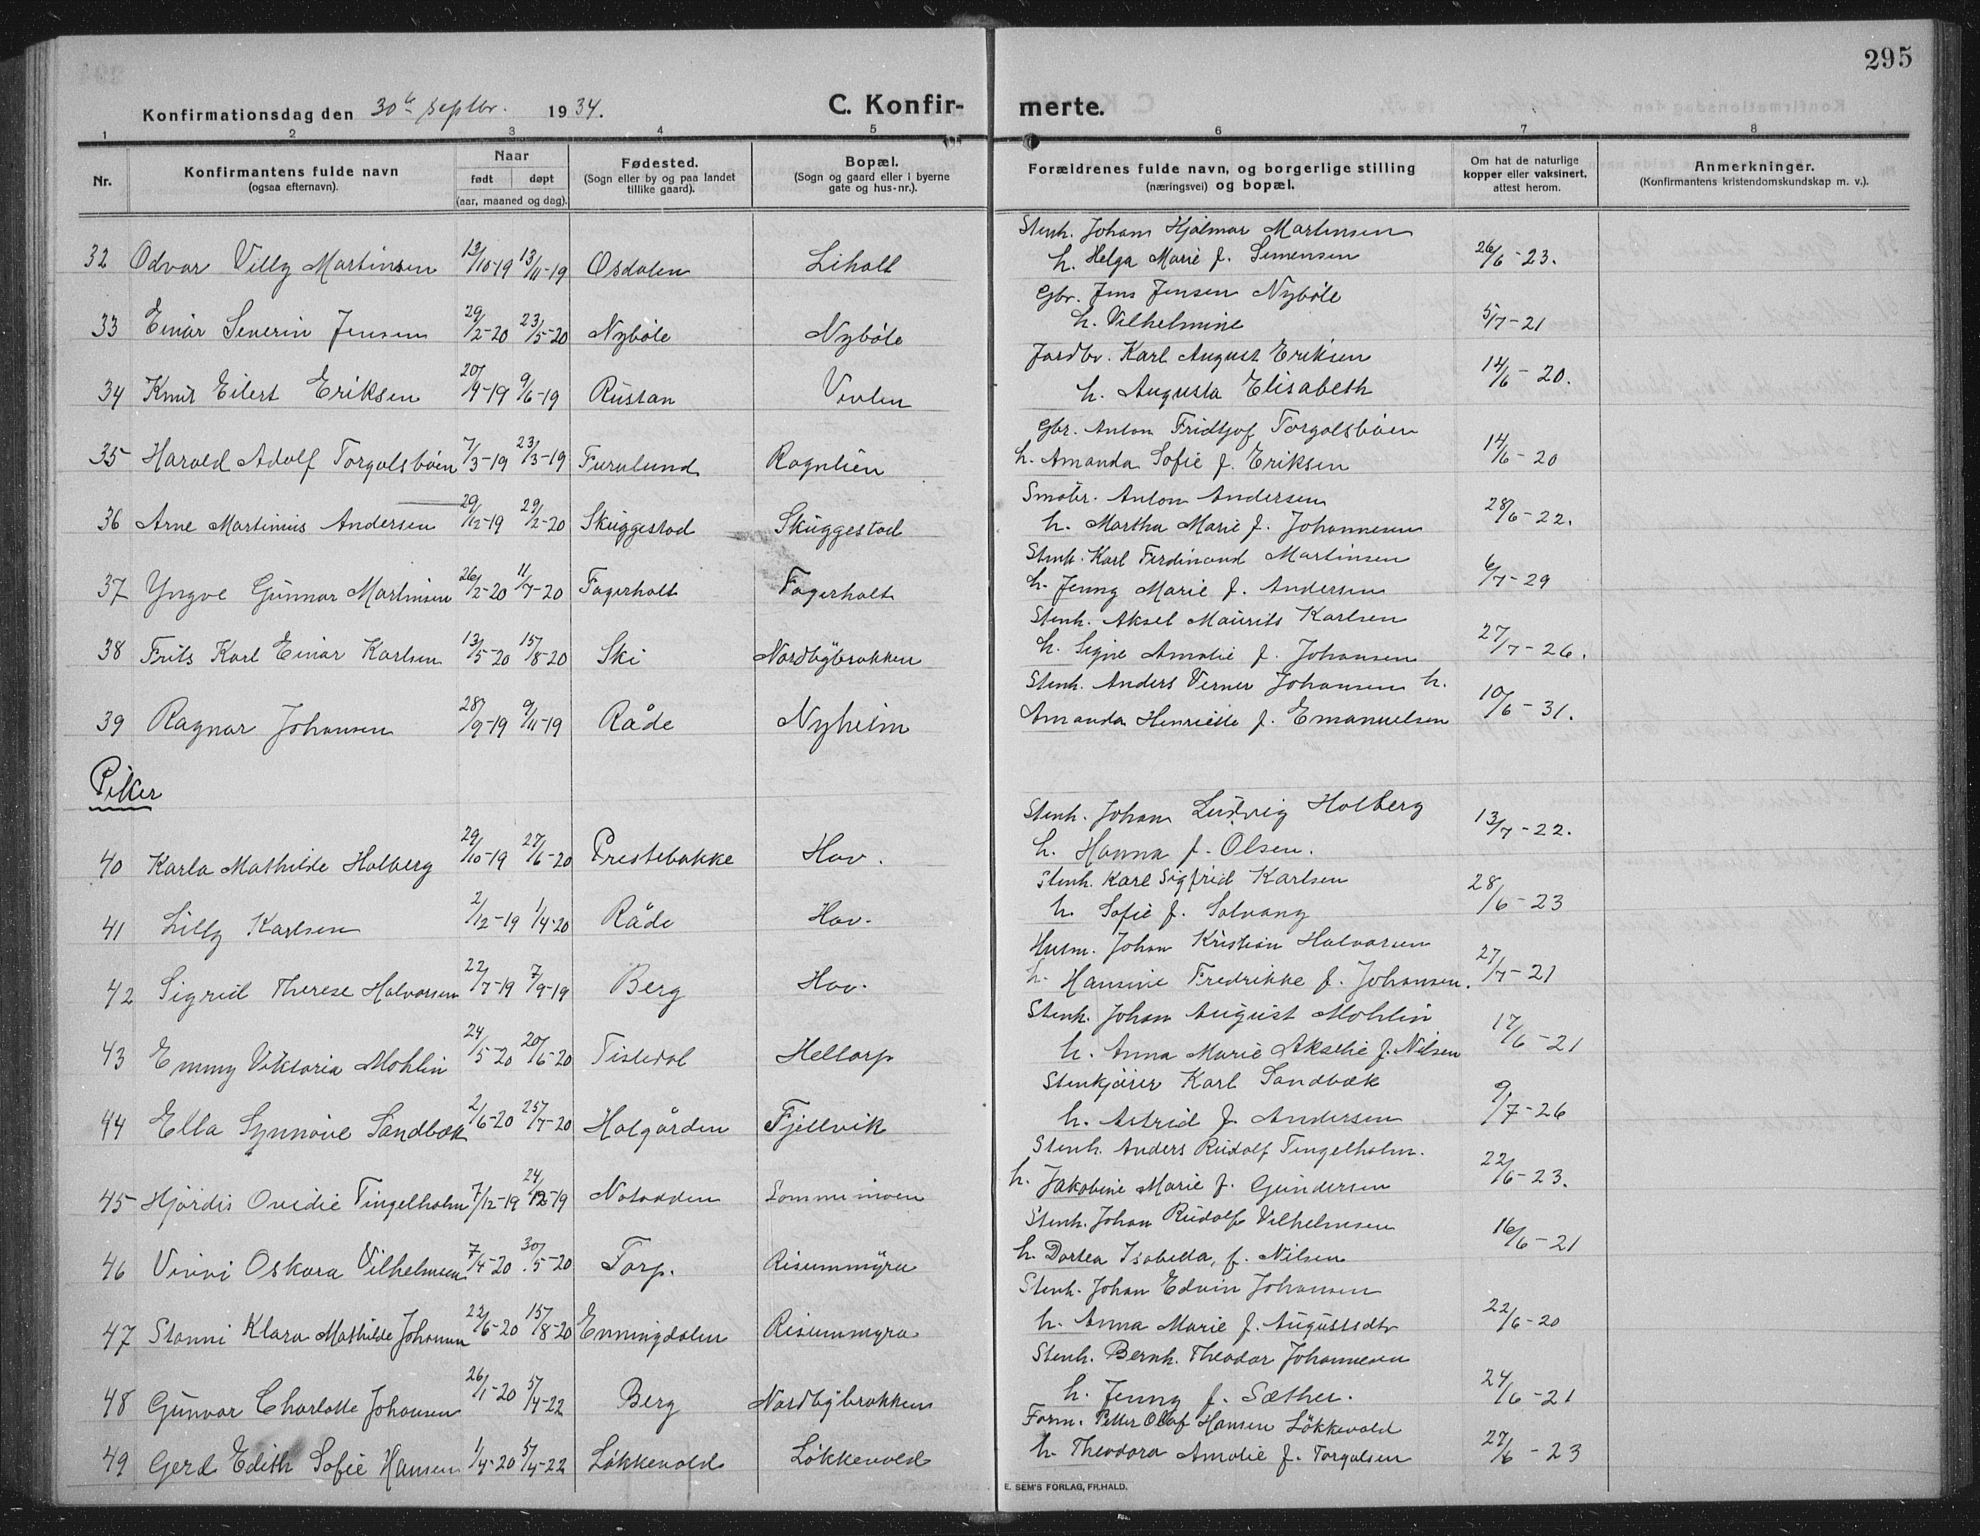 295
Konfirmationsdag den 30te septbr. 1934. C. Konfir- merte.
1 2 3 4 5 6 7 8
Nr. Konfirmantens fulde navn (ogsaa efternavn). Naar født døpt (aar, maaned og dag). Fødested. (Sogn eller by og paa landet tillike gaard). Bopæl. (Sogn og gaard eller i byerne gate og hus-nr.). Forældrenes fulde navn, og borgerlige stilling (næringsvei) og bopæl. Om hat de naturlige kopper eller vaksinert, attest herom. Anmerkninger. (Konfirmantens kristendomskundskap m. v.).
Stenh. Johan Hjalmar Martinsen
32 Odvar Villy Martinsen 13/10-19 13/11-19 Osdalen Liholt h. Helga Marie f. Simensen 26/6-23.
Gbr. Jens Jensen Nyböle
33 Einar Severin Jensen 29/2-20 23/5-20 Nyböle Nyböle h. Vilhelmine 5/7-21
Jordbr. Karl August Eriksen
34 Knut Eilert Eriksen 20/4-19 9/6-19 Rustan h. Augusta Elisabeth 14/6-20.
Gbr. Anton Fridtjof Torgalsböen
35 Harald Adolf Torgalsböen 7/3-19 23/3-19 Furulund Rognlien h. Amanda Sofie f. Eriksen 14/6-20
Småbr. Anton Andersen
36 Arne Martinius Andersen 29/12-19 29/2-20 Skuggestad Skuggestad h. Martha Marie f. Johannesen 28/6-22.
Stenh. Karl Ferdinand Martinsen
37 Yngve Gunnar Martinsen 26/2-20 11/7-20 Fagerholt Fagerholt h. Jenny Marie f. Andersen 6/7-29
Stenh. Aksel Maurits Karlsen
38 Frits Karl Einar Karlsen 13/5-20 15/8-20 Ski Nordbybrakken h. Signe Amalie f. Johansen 27/7-26.
Stenh. Anders Verner Johansen h.
39 Ragnar Johansen 28/9-19 9/11-19 Råde Nyheim Amanda Henriette f. Emanuelsen 10/6-31.
Piker
Stenh. Johan Ludvig Holberg
40 Karla Mathilde Holberg 29/10-19 27/6-20 Prestebakke Hov. h. Hanna f. Olsen. 13/7-22.
Stenh. Karl Sigfrid Karlsen
41 Lilly Karlsen 2/12-19 1/4-20 Råde Hov. h. Sofie f. Solvang 28/6-23
Husm. Johan Kristian Halvorsen
42 Sigrid Therese Halvorsen 22/7-19 7/9-19 Berg Hov. h. Hansine Fredrikke f. Johansen. 27/7-21
Stenh. Johan August Mohlin
43 Emmy Viktoria Mohlin 24/5-20 20/6-20 Tistedal Heltorp h. Anna Marie Akselie f. Nilsen 17/6-21
Stenkjører Karl Sandbæk
44 Ella Synnöve Sandbæk 2/6-20 25/7-20 Halgården Fjellvik h. Astrid f. Andersen 9/7-26
Stenh. Anders Rudolf Tingelholm.
45 Hjördis Ovidie Tingelholm 7/12-19 24/12-19 Notodden h. Jakobine Marie f. Gundersen 22/6-23.
Stenh. Johan Rudolf Vilhelmsen
46 Vivvi Oskara Vilhelmsen 7/4-20 30/5-20 Torp. Risummyra h. Dortea Isabella, f. Nilsen 16/6-21
Stenh. Johan Edvin Johansen
47 Stanni Klara Mathilde Johansen 22/6-20 15/8-20 Enningdalen Risummyra h. Anna Marie f. Augustsdtr 22/6-20
Stenh. Bernh. Theodor Johannesen
48 Gunvor Charlotte Johansen 26/1-20 5/4-22 Berg Nordbybrakken h. Jenny f. Sæther. 24/6-21
Form. Petter Olaf Hansen Løkkevold
49 Gerd Edith Sofie Hansen 1/4-20 5/4-22 Løkkevold Løkkevold h. Theodora Amalie f. Torgalsen 27/6-23
E. SEM'S FORLAG, FR.HALD.